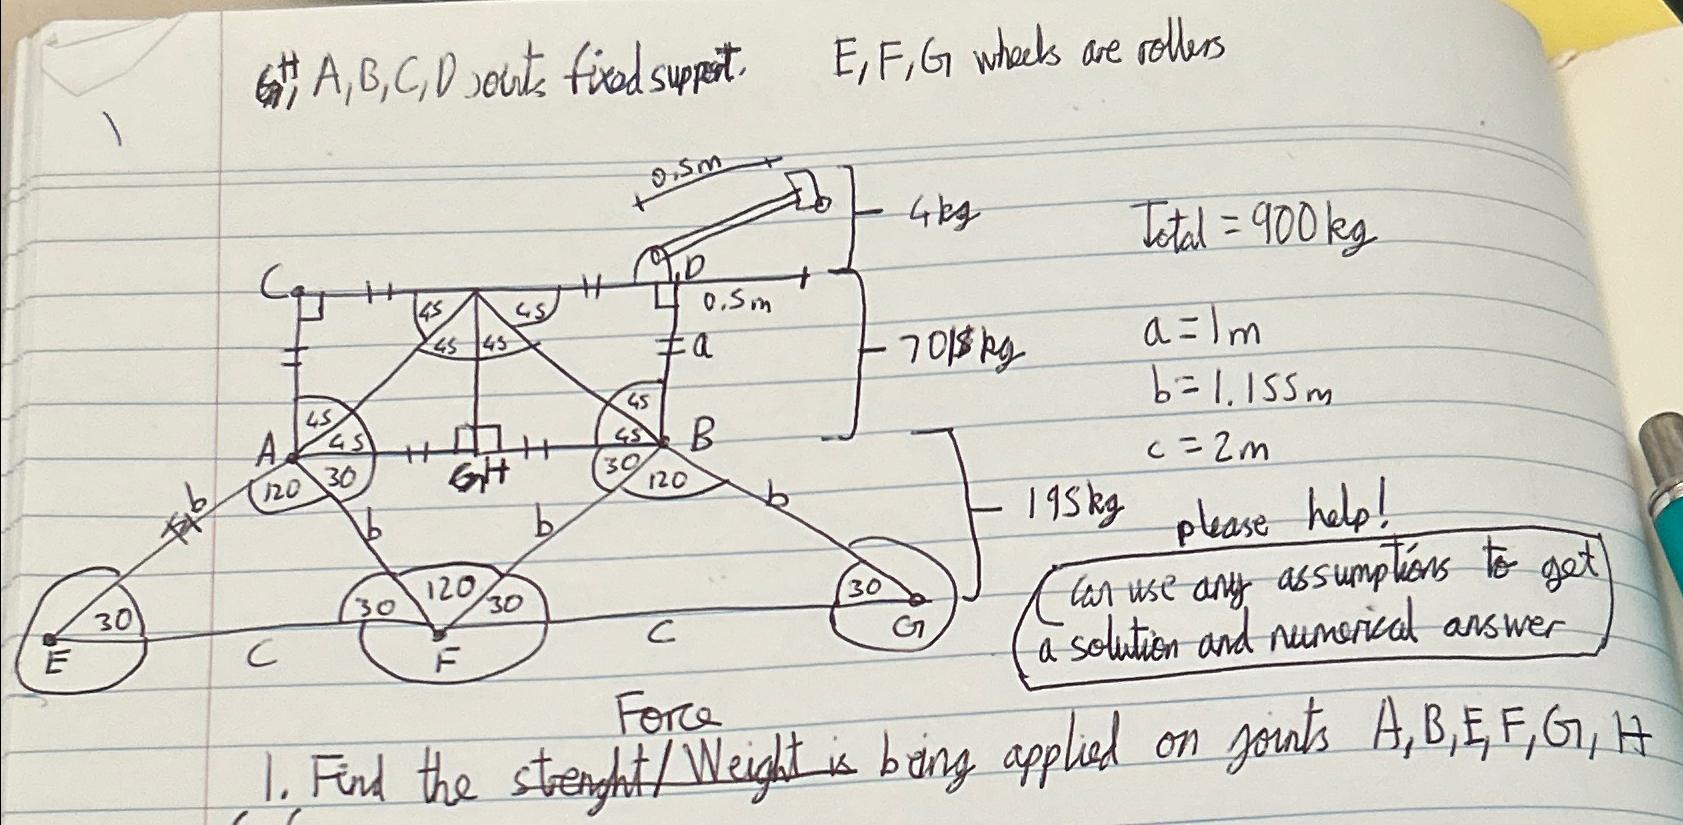 H, A, B, C, D joints fixed support. E, F, G wheels are rollers
0.5m
4kg
Total = 900kg
C
D
0.5m
45
45
45
45
a
701kg
a = 1m
b = 1.155m
c = 2m
45
45
A
30
120
H
45
45
B
30
120
b
b
b
b
195kg
please help!
can use any assumptions to get
a solution and numerical answer
30
E
C
30
120
30
F
C
30
G
Force
1. Find the strenght/Weight is being applied on joints A, B, E, F, G, H